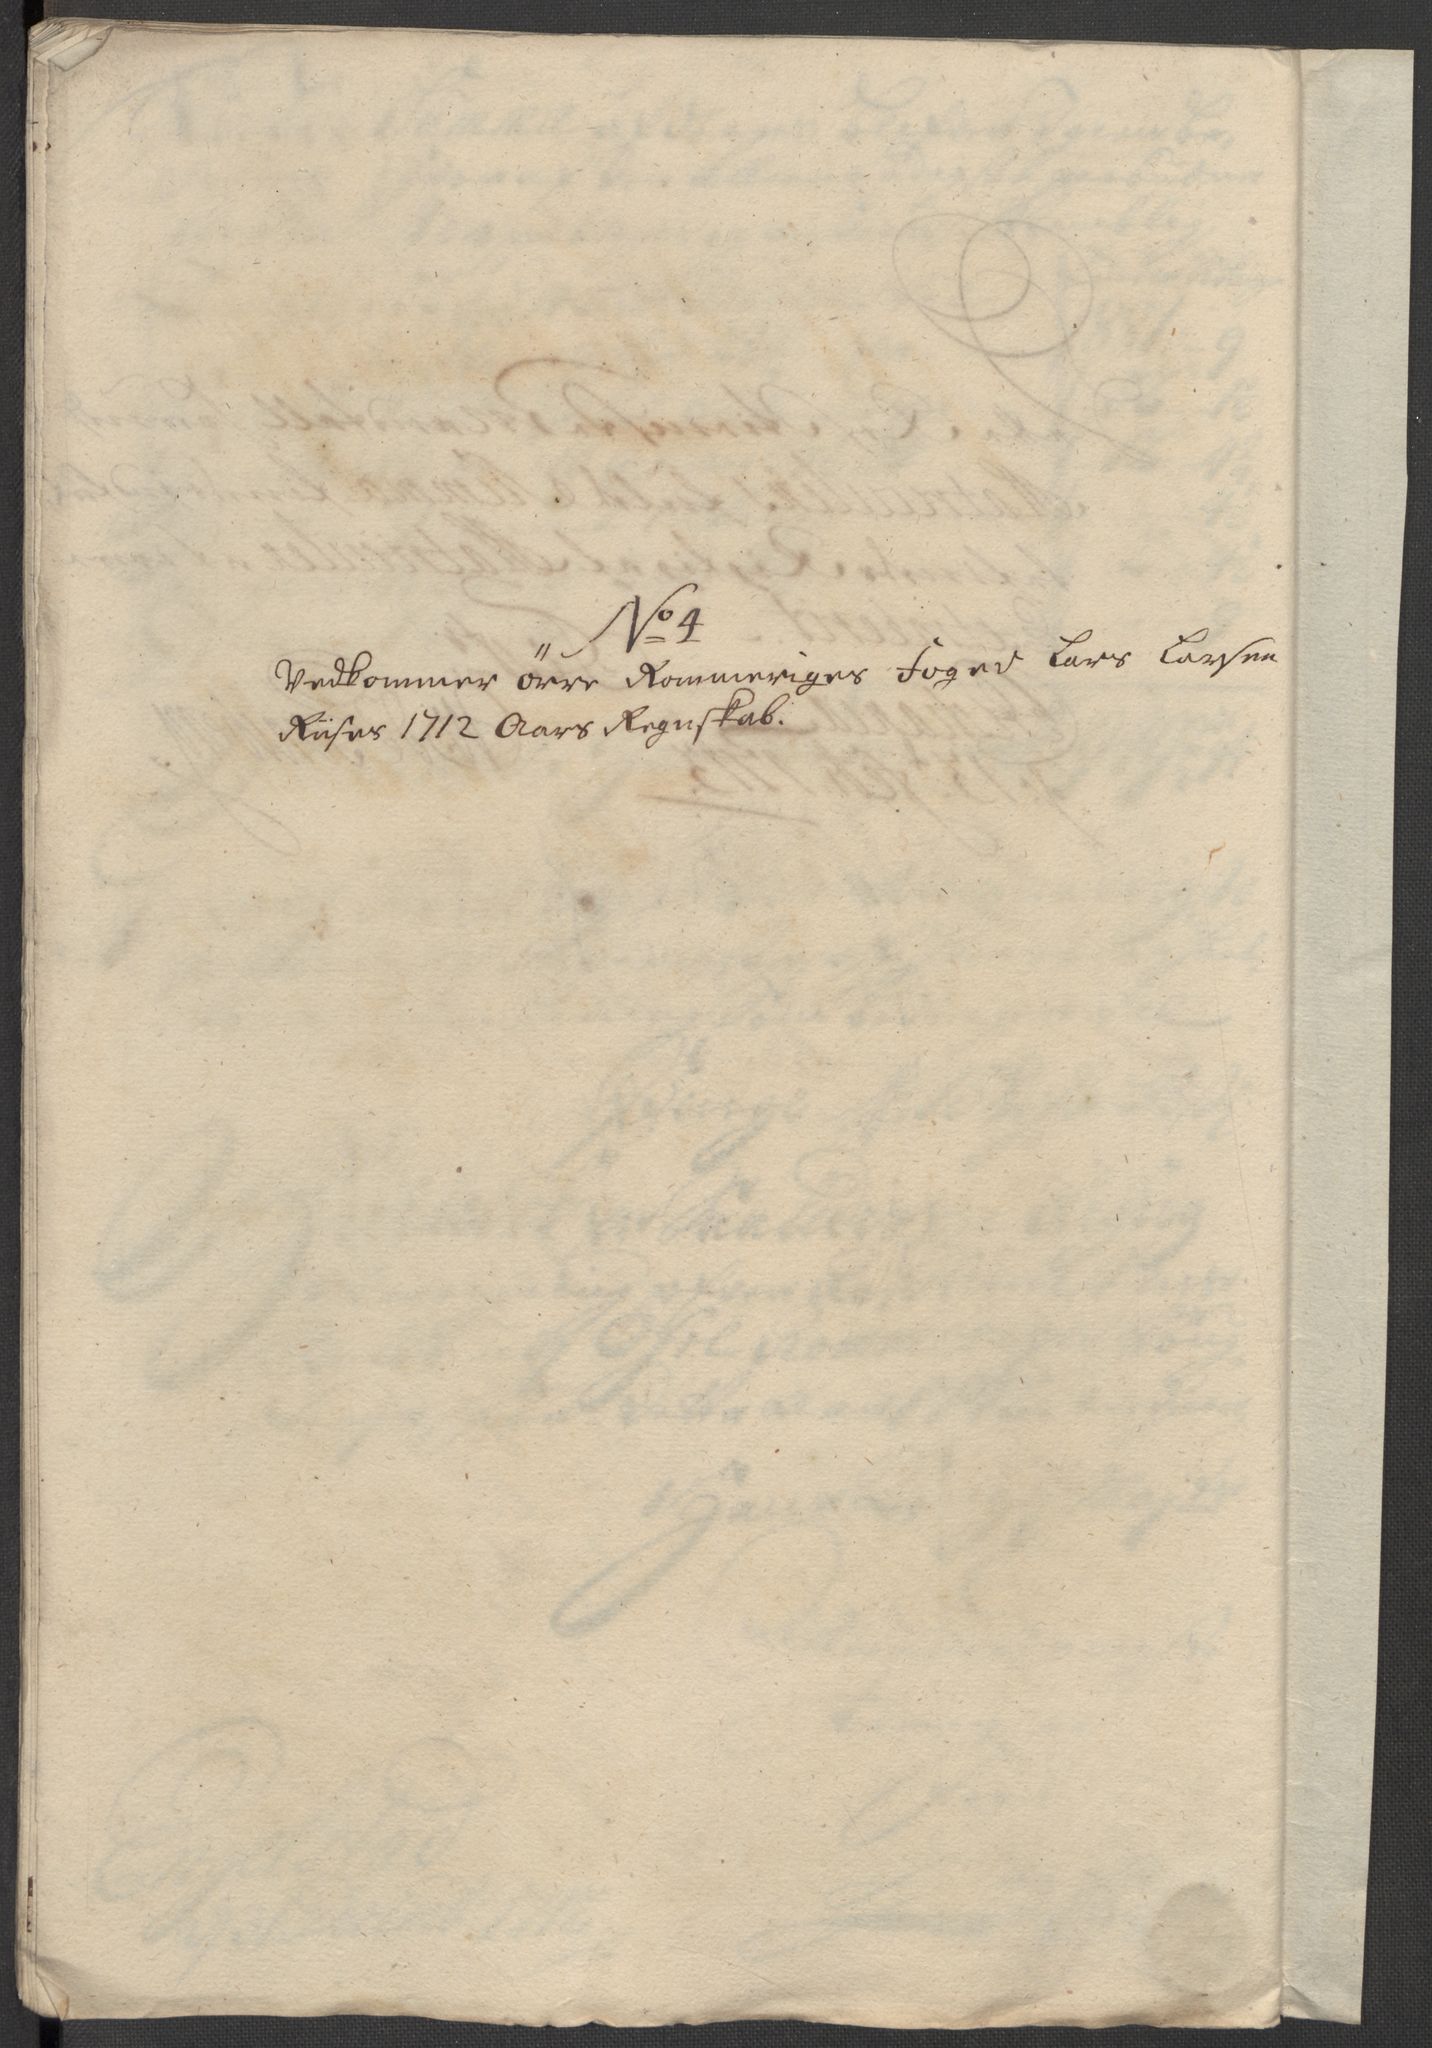 No 4
Vedkommer öfre Rommeriges Foged Lars Larsen
Riises 1712 Aars Regnskab.